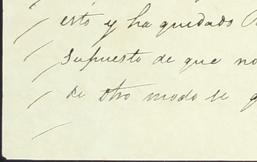 esto y ha quedado
Supuesto de que no
de otro modo se